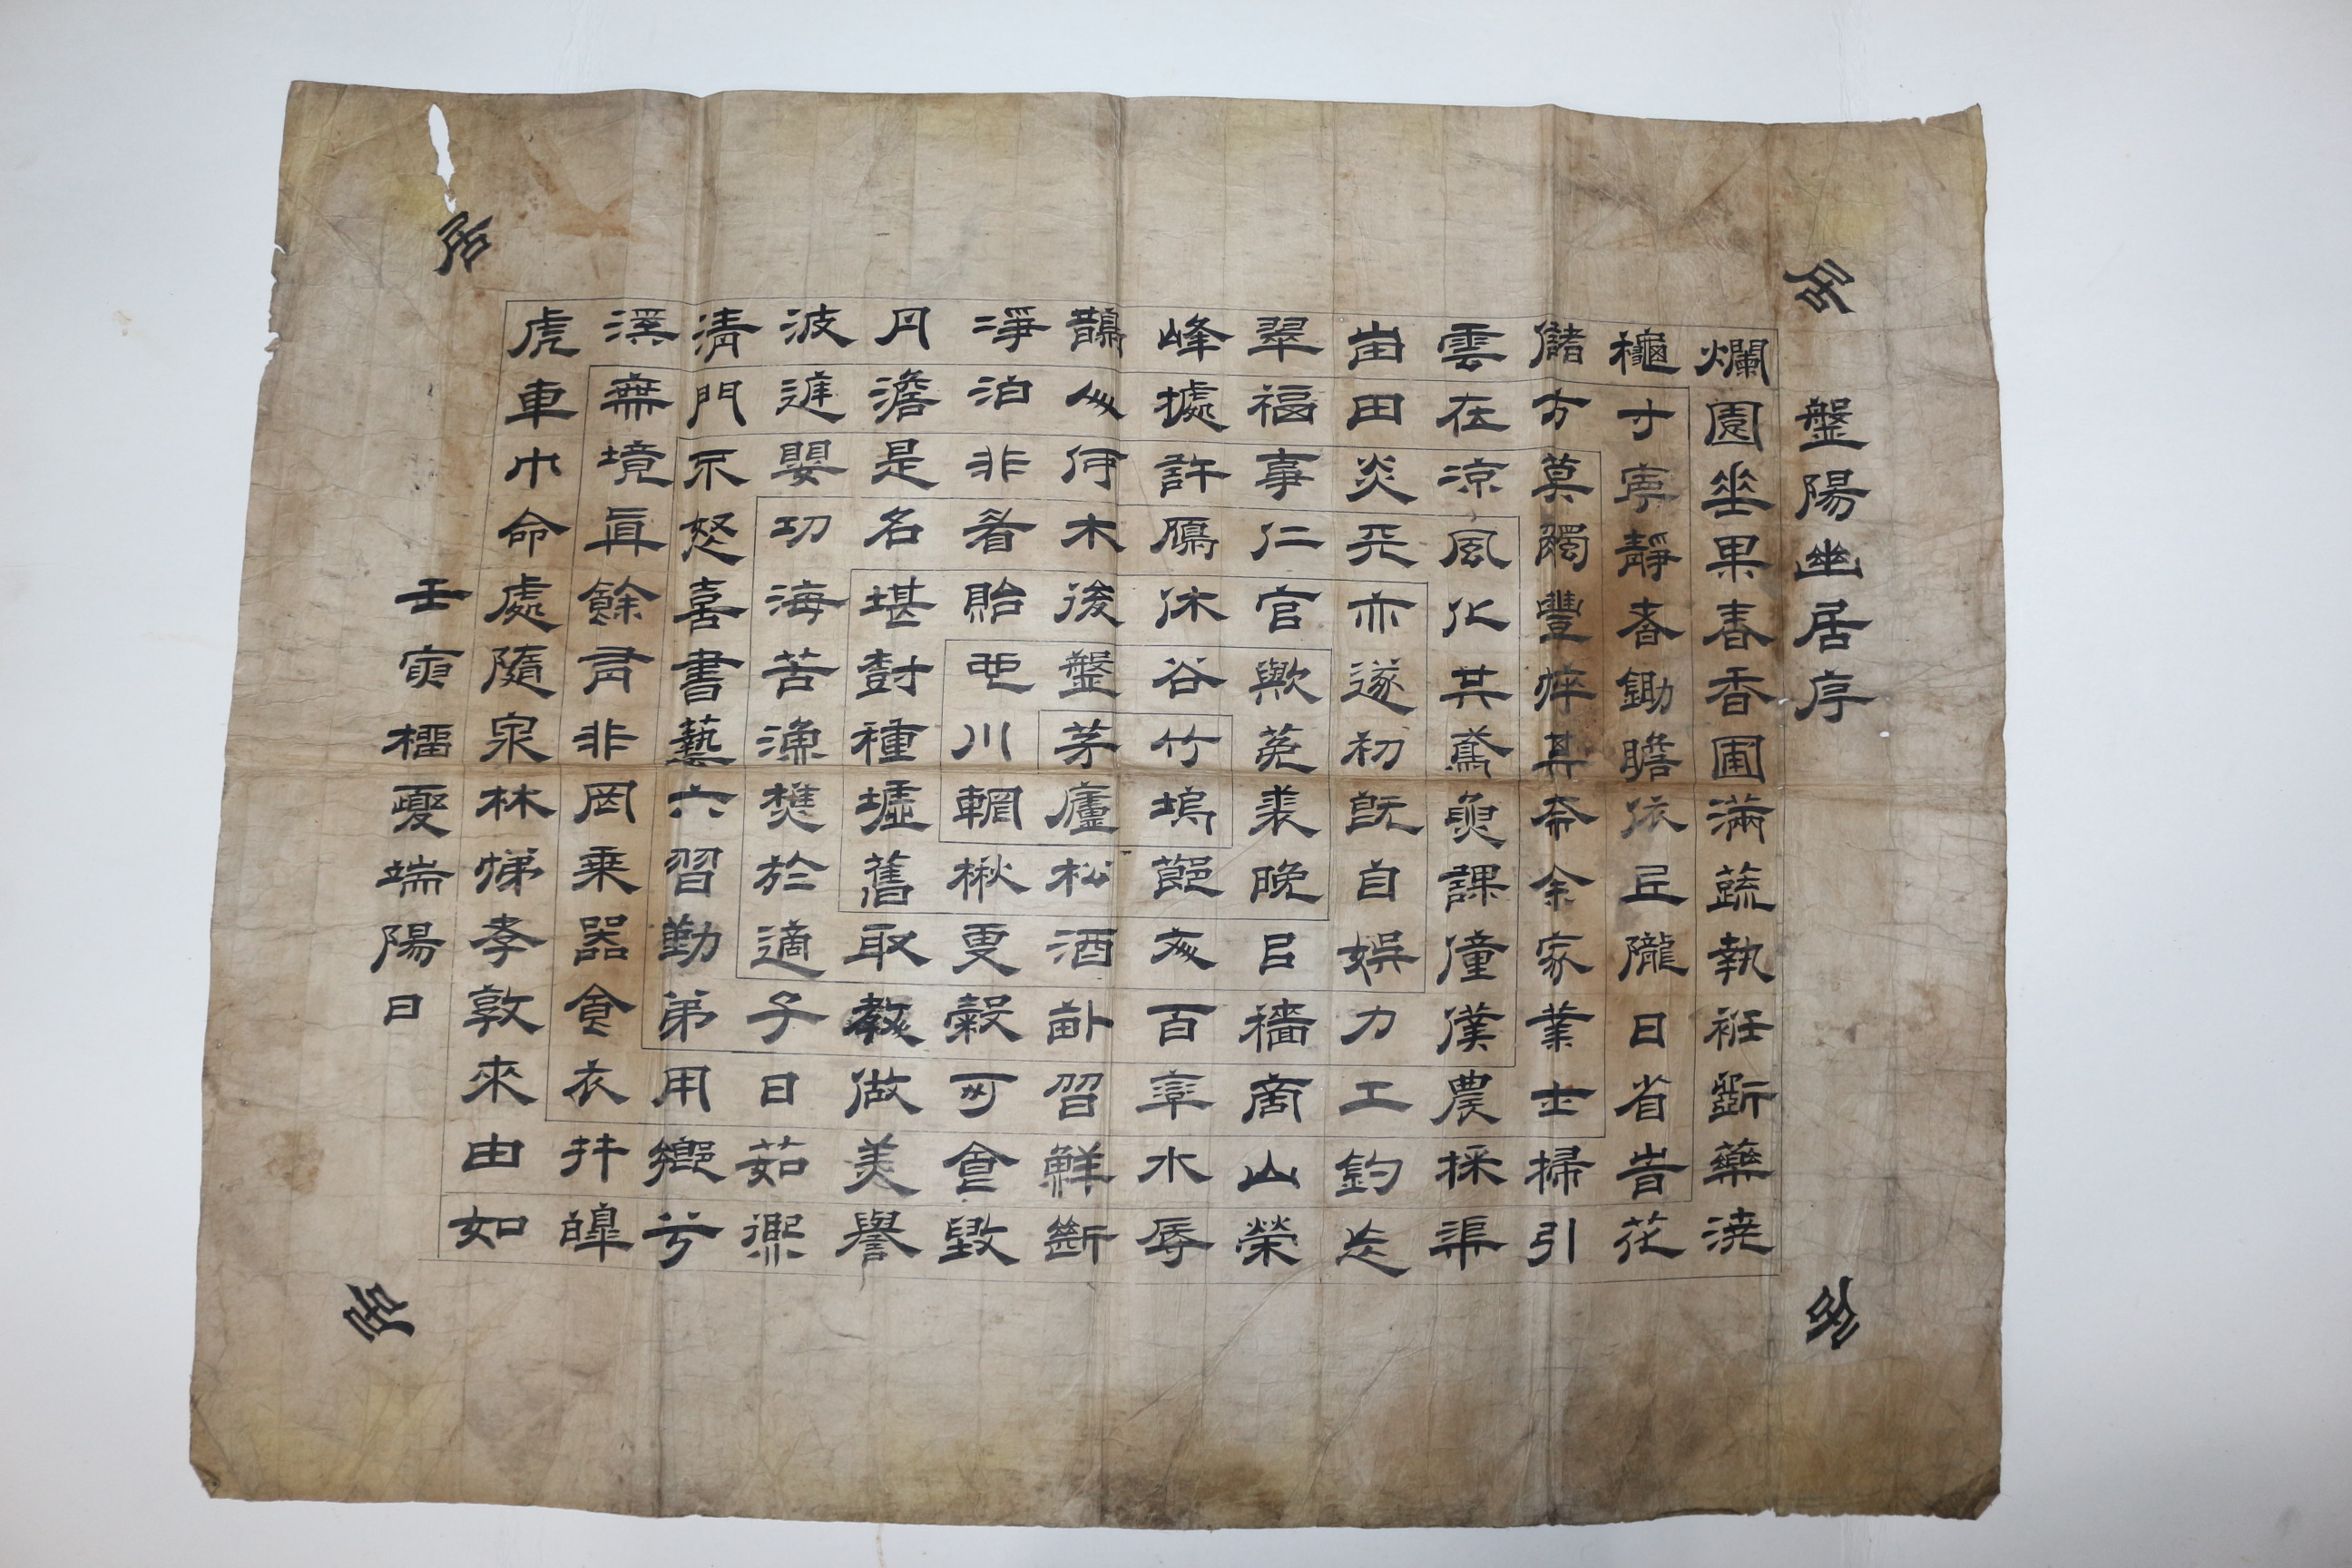 居
居
盤陽幽居序
爛園華果春香圃滿蔬執袵斲藥澆
寸寧靜春鋤瞻依丘隴日省旹花
儲方莫獨豐瘁其奈余家業士掃引
雲在凉風化其鳶魚課僮僕農採渠
田炎天亦遂初旣自娛力工釣忘
翠福事仁官歟菟裘晩㠯穡商山榮
峰據許鴈休谷竹塢節友百宰水辱
鵲似何木後盤茅廬松酒畝習鮮斷
淨泊非看貽亞川輞楸更穀可食毁
丹澹是名堪對種墟舊取敎做美譽
波進嬰功海苦漁樵於適子日茹熙
淸門不怒喜書藝六習勤弟用鄕兮
溪無境眞餘有非罔乗器食衣井皥
虎車巾命處隨泉林悌孝敦來由如
壬寅榴夏端陽日
居
居